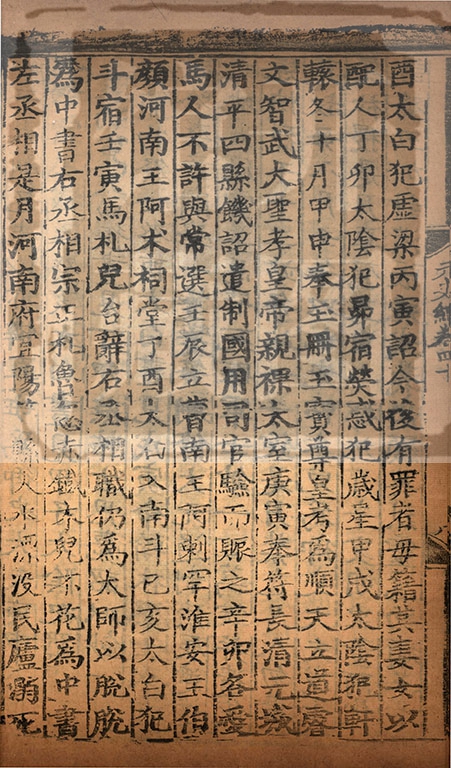 酉太白犯虛梁丙寅詔今後有罪者毋籍其妻女以
配人丁卯太陰犯昴宿熒惑犯歲星甲戌太陰犯軒
轅冬十月甲申奉玉冊玉寶尊皇考為順天立道睿
文智武大聖孝皇帝親祼太室庚寅奉符長清元城
清平四縣饑詔遣制國用司官驗而賑之辛卯各愛
馬人不許與常選壬辰立曹南王阿剌罕淮安王伯
顏河南王阿术祠堂丁酉太白入南斗己亥太白犯
斗宿壬寅馬札兒台辭右丞相職仍為太師以脫脫
為中書右丞相宗正札魯忽赤鐵木兒不花為中書
左丞相是月河南府宜陽等縣大水漂沒民廬溺死